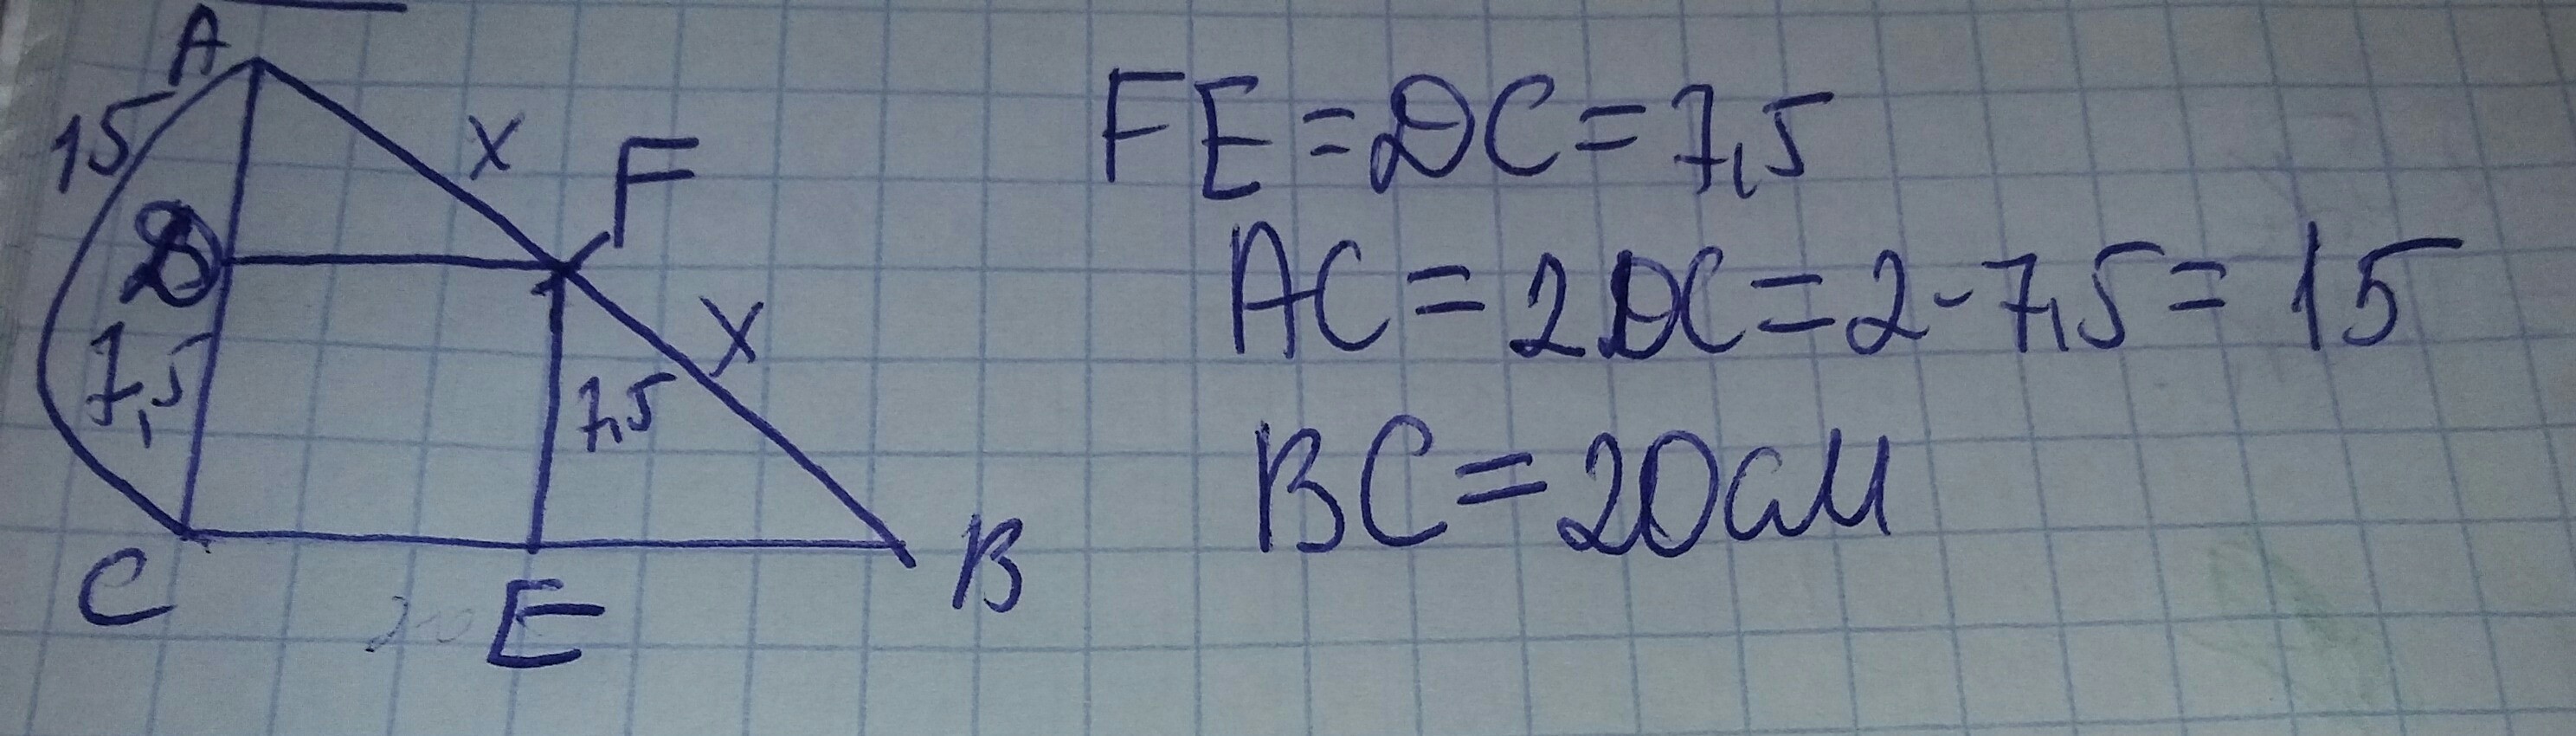 A
15
x
F
D
x
7,5
7,5
C
E
B
FE=DC=7,5
AC=2DC=2·7,5=15
BC=20см